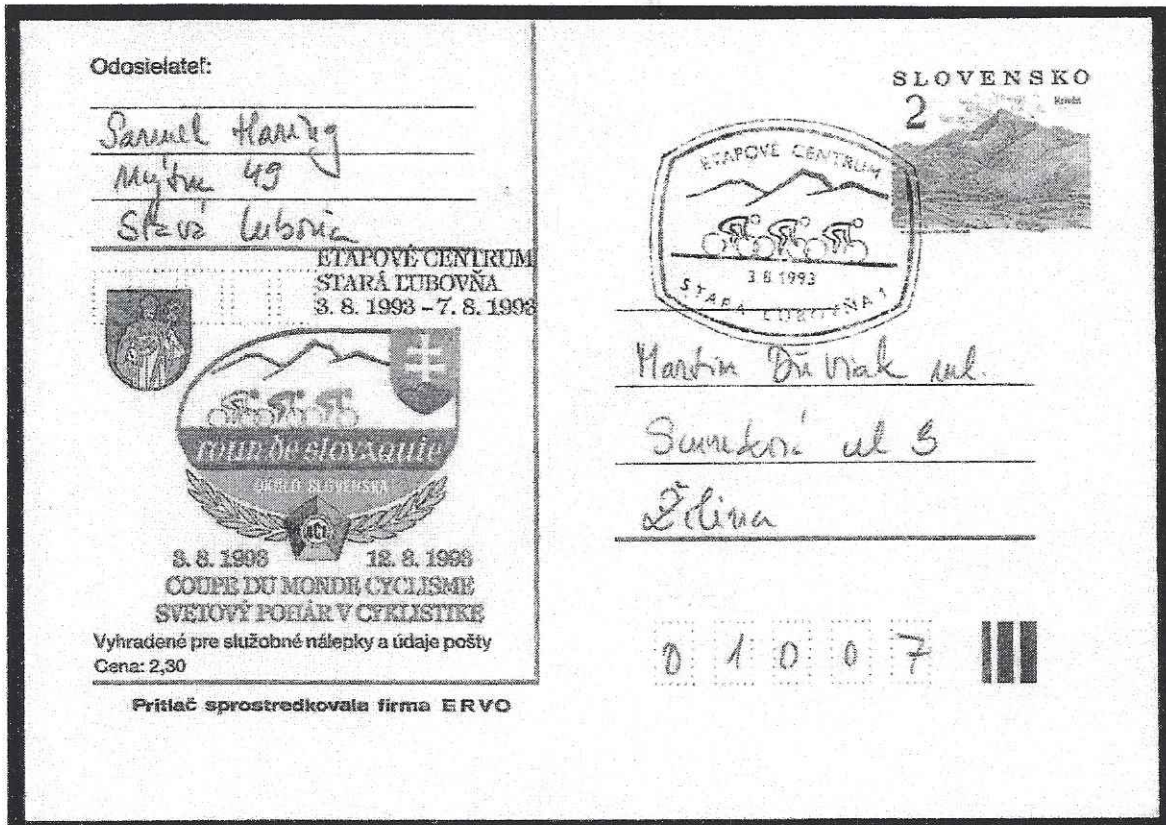 Odosielateľ:
Samuel
Mýtna 49
Stará Ľubovňa
ETAPOVÉ CENTRUM
STARÁ ĽUBOVŇA
3. 8. 1993 – 7. 8. 1993
tour de slovaquie
OKOLO SLOVENSKA
3. 8. 1993 12. 8. 1993
COUPE DU MONDE CYCLISME
SVETOVÝ POHÁR V CYKLISTIKE
Vyhradené pre služobné nálepky a údaje pošty
Cena: 2,30
Prítlač sprostredkovala firma ERVO
SLOVENSKO
2
Kriváň
ETAPOVÉ CENTRUM
3 8 1993
STARÁ ĽUBOVŇA 1
Martin ml.
ul 3
Žilina
0 1 0 0 7